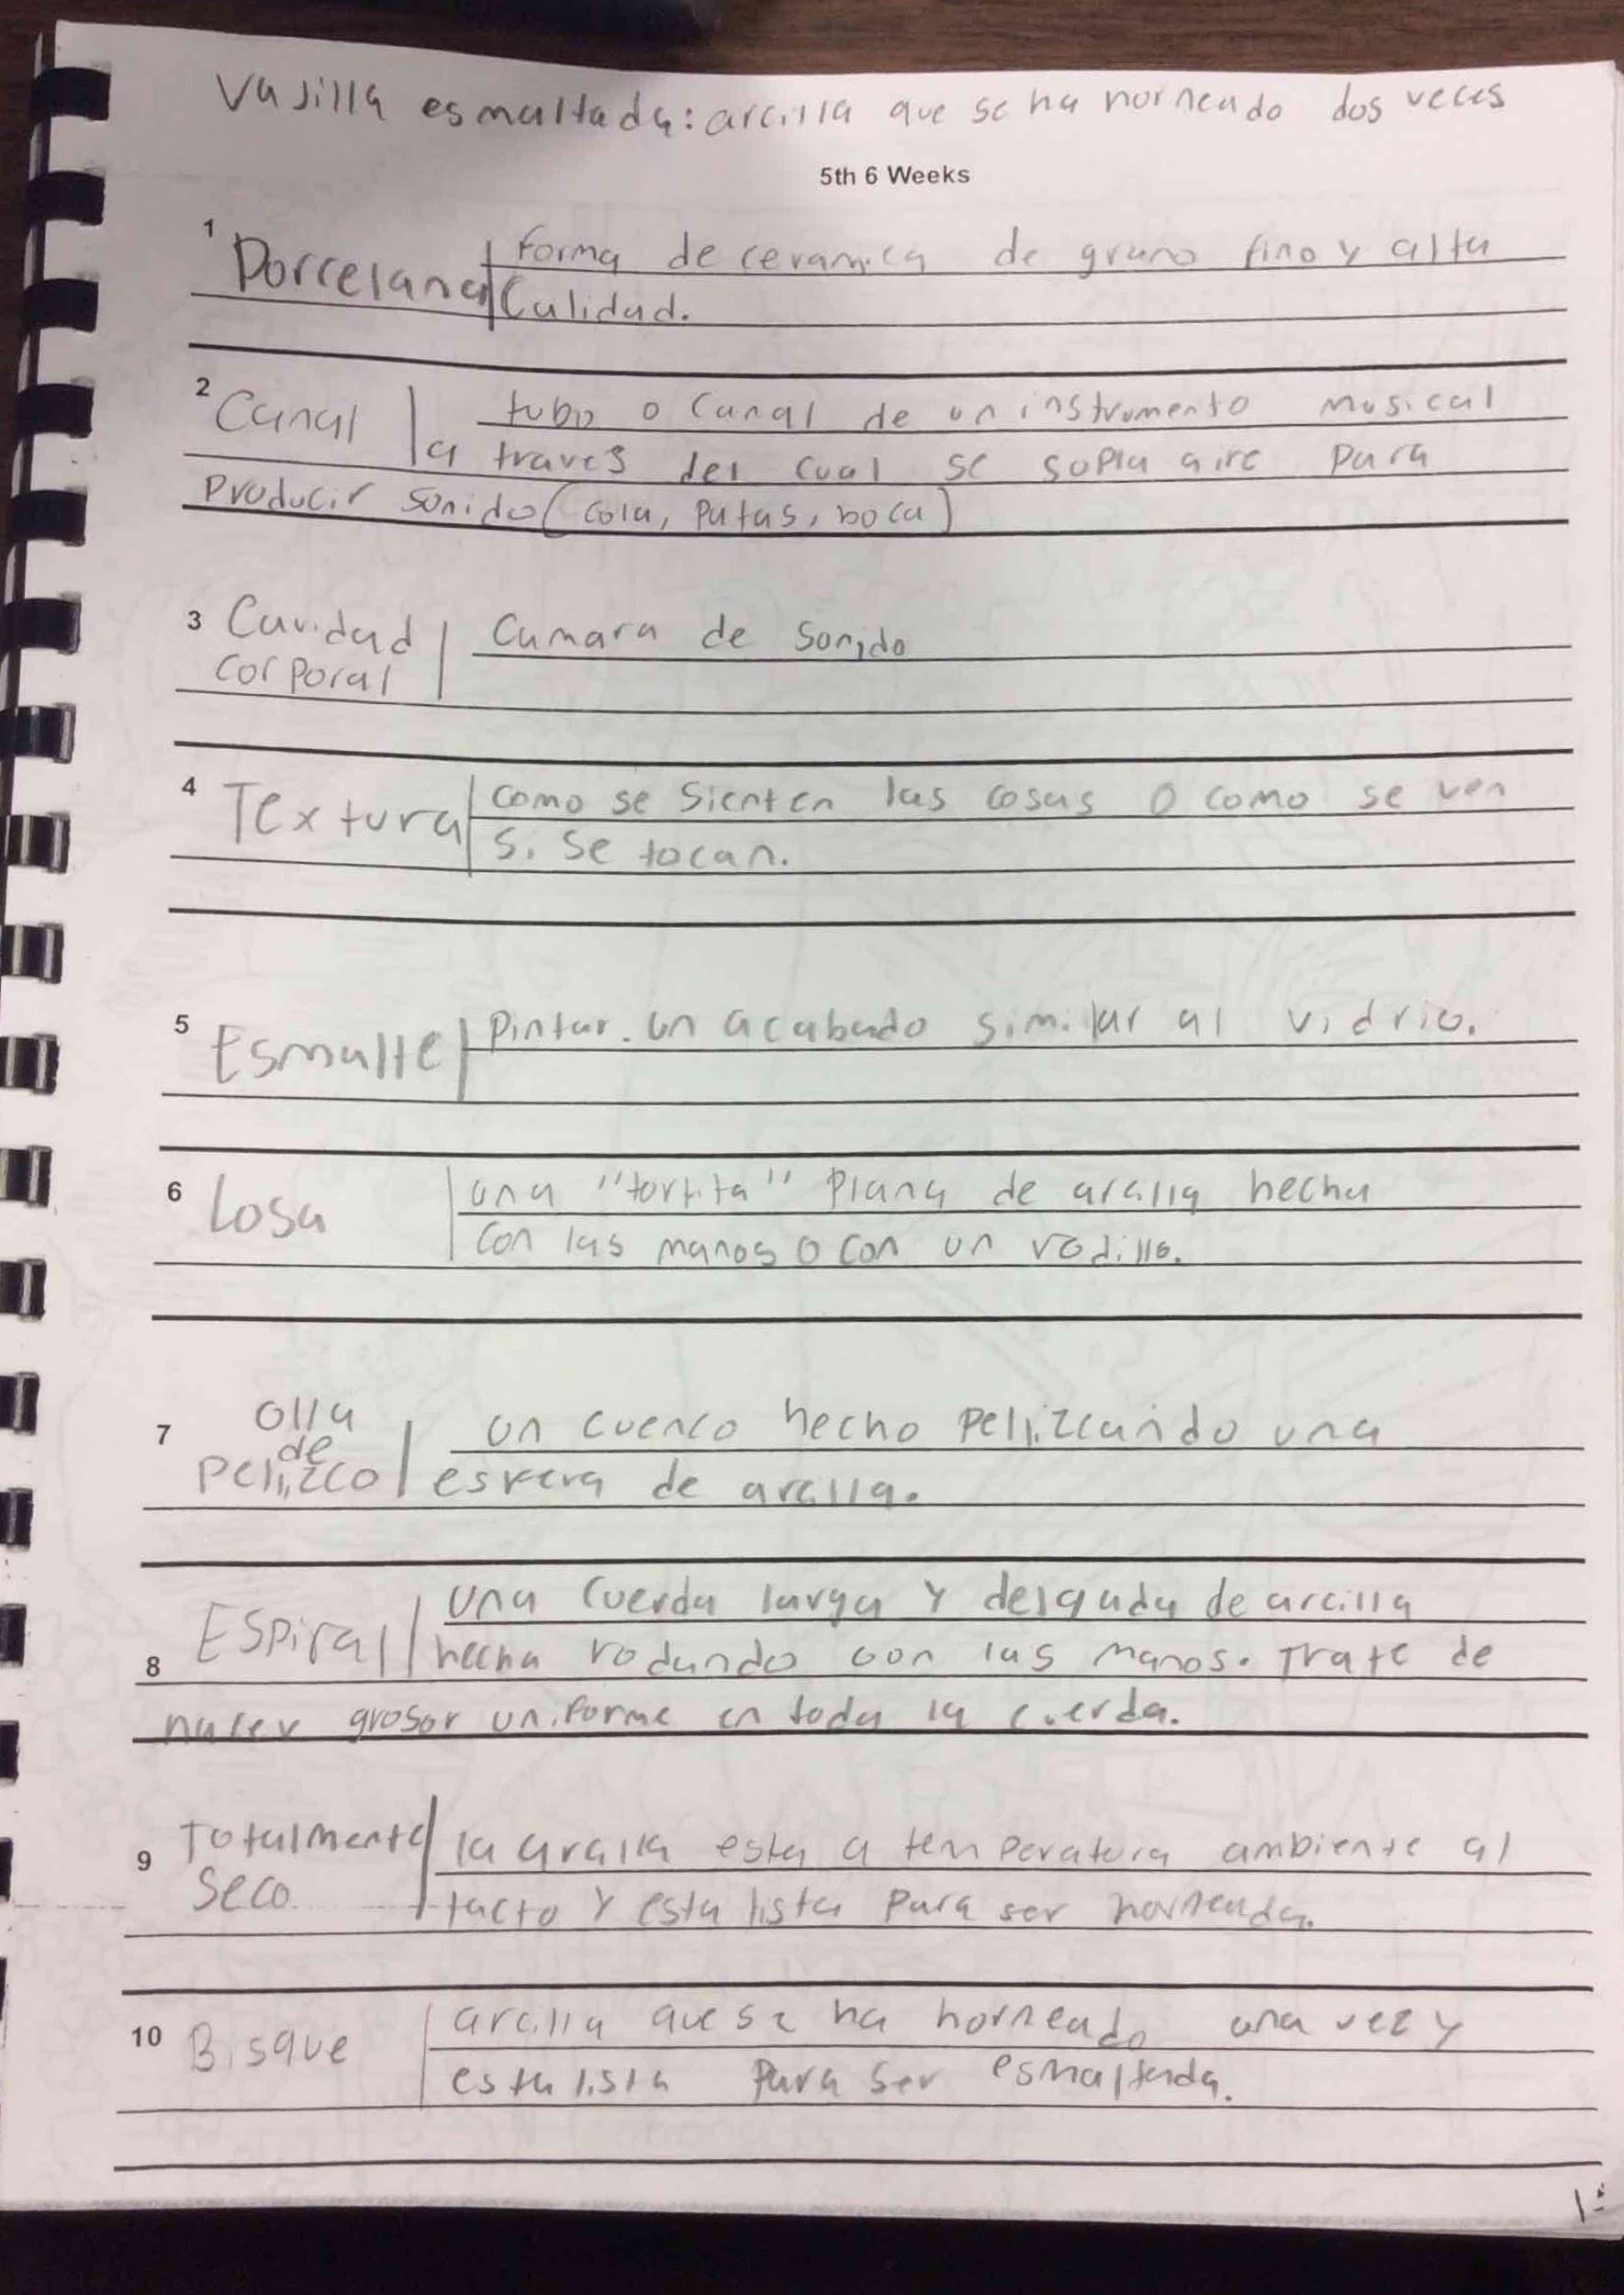 Vajilla esmaltada: arcilla que se ha horneado dos veces
5th 6 Weeks
1 Porcelana | Forma de ceramica de grano fino y alta
Calidad.
2 Canal | tubo o Canal de un instrumento musical
a traves del cual se sopla aire para
Producir sonido (cola, patas, boca)
3 Cavidad corporal | Camara de sonido
4 Textura | como se sienten las cosas o como se ven
si se tocan.
5 Esmalte | Pintar. un acabado similar al vidrio.
6 Losa | una "tortita" plana de arcilla hecha
con las manos o con un rodillo.
7 olla de Pellizco | un cuenco hecho pellizcando una
esfera de arcilla.
8 Espiral | una cuerda larga y delgada de arcilla
hecha rodando con las manos. Trate de
hacer grosor uniforme en toda la cuerda.
9 Totalmente Seco | la arcilla esta a temperatura ambiente al
tacto y esta lista para ser horneada.
10 Bisque | arcilla que se ha horneado una vez y
esta lista para ser esmaltada.